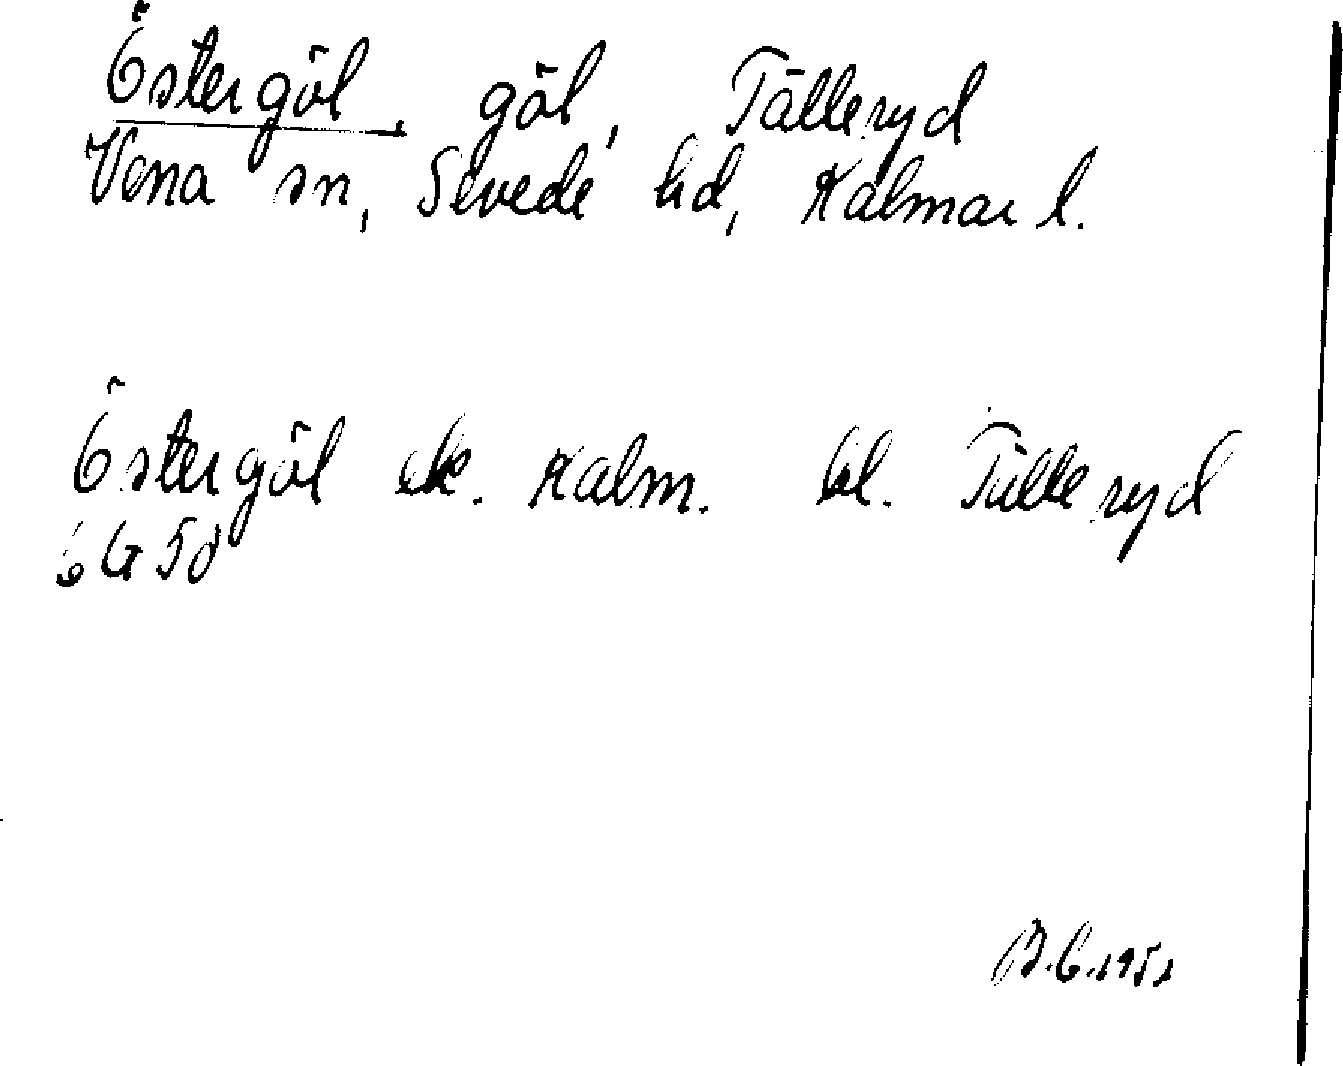 Östergöl, göl, Tälleryd
Vena sn, Sevede hd, Kalmar l.
Östergöl ek. Kalm. bl. Tälleryd
6G 5d
B.G.1951